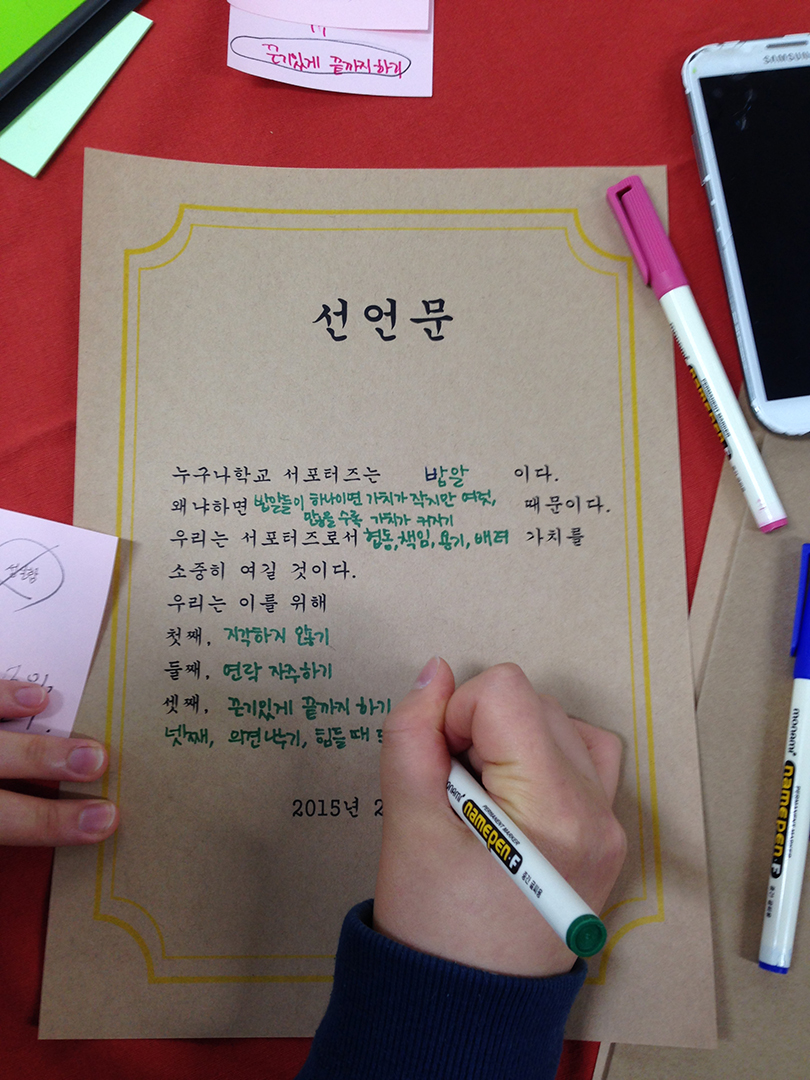 끈기있게 끝까지 하기
SAMSUNG
선언문
누구나학교 서포터즈는 밥알 이다.
왜냐하면 밥알들이 하나이면 가치가 작지만 여럿, 때문이다.
많을 수록 가치가 커지기
우리는 서포터즈로서 협동, 책임, 용기, 배려 가치를
소중히 여길 것이다.
우리는 이를 위해
첫째, 지각하지 않기
둘째, 연락 자주하기
셋째, 끈기있게 끝까지 하기
넷째, 의견 나누기, 힘들 때
2015년 2
PERMANENT MARKER
namepen
monami
PERMANENT MARKER
namepen·F
중간 글씨용
monami
PERMANENT MARKER
namepen·F
중간 글씨용